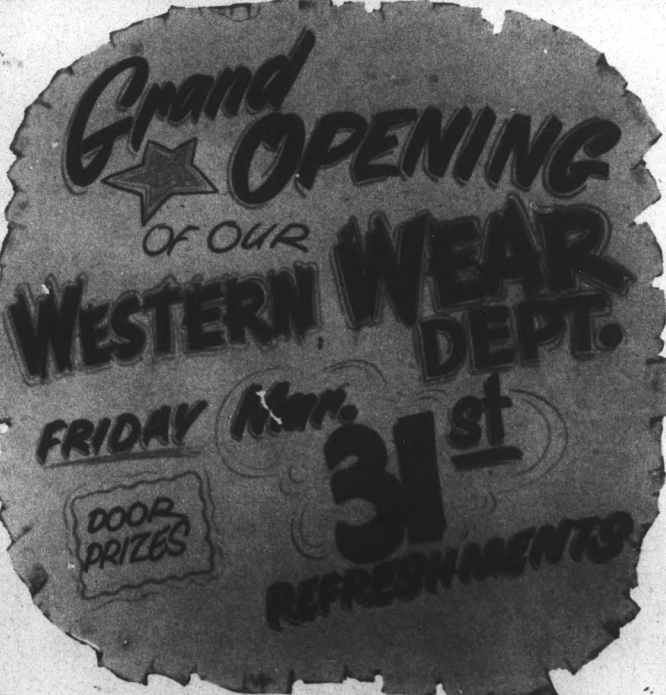 Grand
OPENING
OF OUR
WESTERN WEAR
DEPT.
FRIDAY Mar.
31st
DOOR
PRIZES
REFRESHMENTS